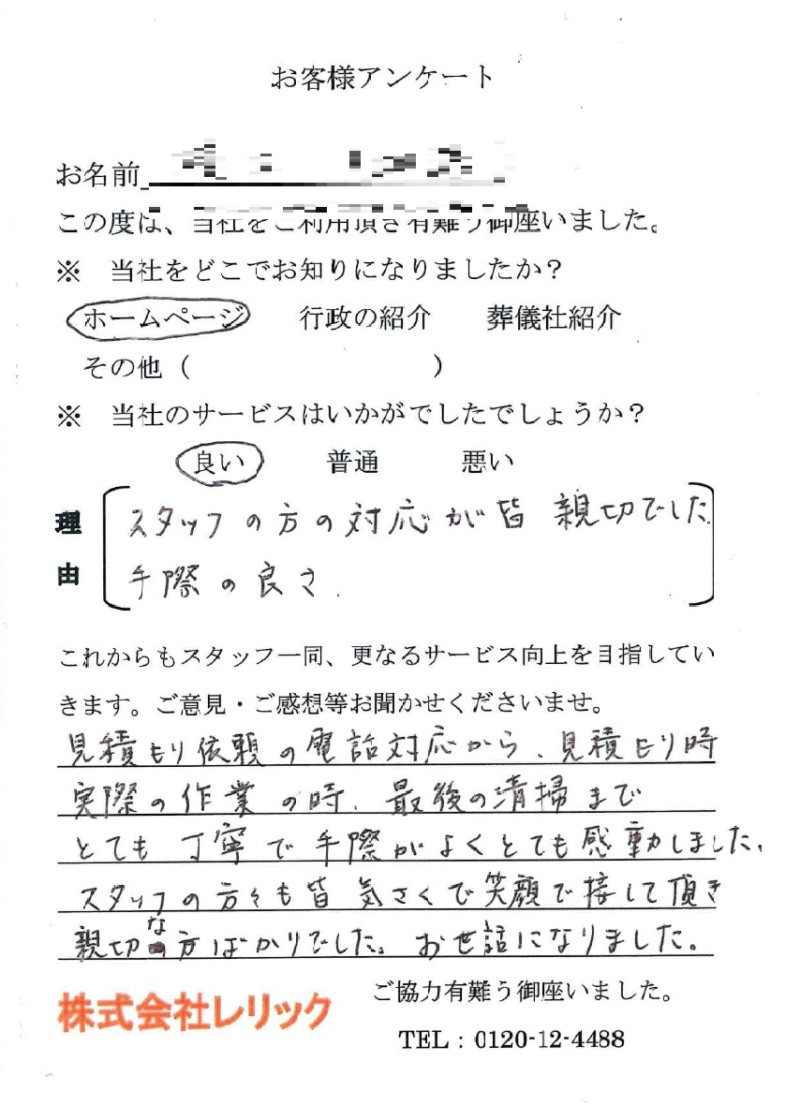 お客様アンケート
お名前
この度は、当社をご利用頂き有難う御座いました。
※ 当社をどこでお知りになりましたか？
ホームページ 行政の紹介 葬儀社紹介
その他（ ）
※ 当社のサービスはいかがでしたでしょうか？
良い 普通 悪い
理由
スタッフの方の対応が皆 親切でした
手際の良さ.
これからもスタッフ一同、更なるサービス向上を目指してい
きます。ご意見・ご感想等お聞かせくださいませ。
見積もり依頼の電話対応から、見積もり時
実際の作業の時、最後の清掃まで
とても丁寧で手際がよくとても感動しました。
スタッフの方々も皆気さくで笑顔で接して頂き
親切な方ばかりでした。お世話になりました。
ご協力有難う御座いました。
株式会社レリック
TEL：0120-12-4488